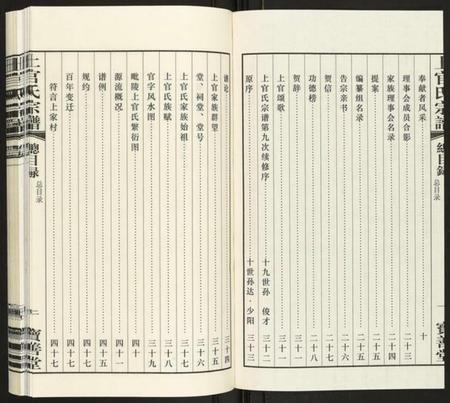 上官氏宗譜
總目録
总目录
寶善堂
奉献者风采 十
理事会成员合影 二十三
家族理事会名录 二十四
提案
编纂组名录 二十五
告宗亲书 二十六
贺信
功德榜 二十八
贺辞
上官颂歌
上官氏宗谱第九次续修序 十九世孙 俊才 三十二
原序 十世孙达·少阳 三十三
谱论 三十四
上官家族群望 三十五
堂、祠堂、堂号 三十六
上官氏家族始祖 三十七
上官氏族赋 三十八
官字风水图 三十九
毗陵上官氏繁衍图 四十
源流概况 四十一
谱例 四十四
规约 四十五
百年变迁 四十七
符言上家村 四十七
上官氏宗譜
總目録
总目录
寶善堂